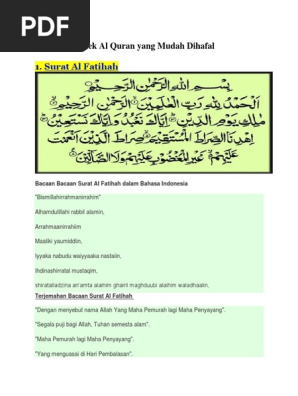 PDF
ek Al Quran yang Mudah Dihafal
1. Surat Al Fatihah
بِسْمِ اللهِ الرَّحْمٰنِ الرَّحِيْمِ
اَلْحَمْدُ لِلّٰهِ رَبِّ الْعٰلَمِيْنَ الرَّحْمٰنِ الرَّحِيْمِ
مٰلِكِ يَوْمِ الدِّيْنِ اِيَّاكَ نَعْبُدُ وَاِيَّاكَ نَسْتَعِيْنُ
اِهْدِنَا الصِّرَاطَ الْمُسْتَقِيْمَ صِرَاطَ الَّذِيْنَ اَنْعَمْتَ
عَلَيْهِمْ غَيْرِ الْمَغْضُوْبِ عَلَيْهِمْ وَلَا الضَّآلِّيْنَ
Bacaan Bacaan Surat Al Fatihah dalam Bahasa Indonesia
"Bismillahirrahmanirrahim"
Alhamdulillahi rabbil alamin,
Arrahmaanirrahiim
Maaliki yaumiddin,
Iyyaka nabudu waiyyaaka nastaiin,
Ihdinashirratal mustaqim,
shiratalladzina an'amta alaihim ghairil maghduubi alaihim waladhaalin,
Terjemahan Bacaan Surat Al Fatihah
"Dengan menyebut nama Allah Yang Maha Pemurah lagi Maha Penyayang".
"Segala puji bagi Allah, Tuhan semesta alam".
"Maha Pemurah lagi Maha Penyayang".
"Yang menguasai di Hari Pembalasan".